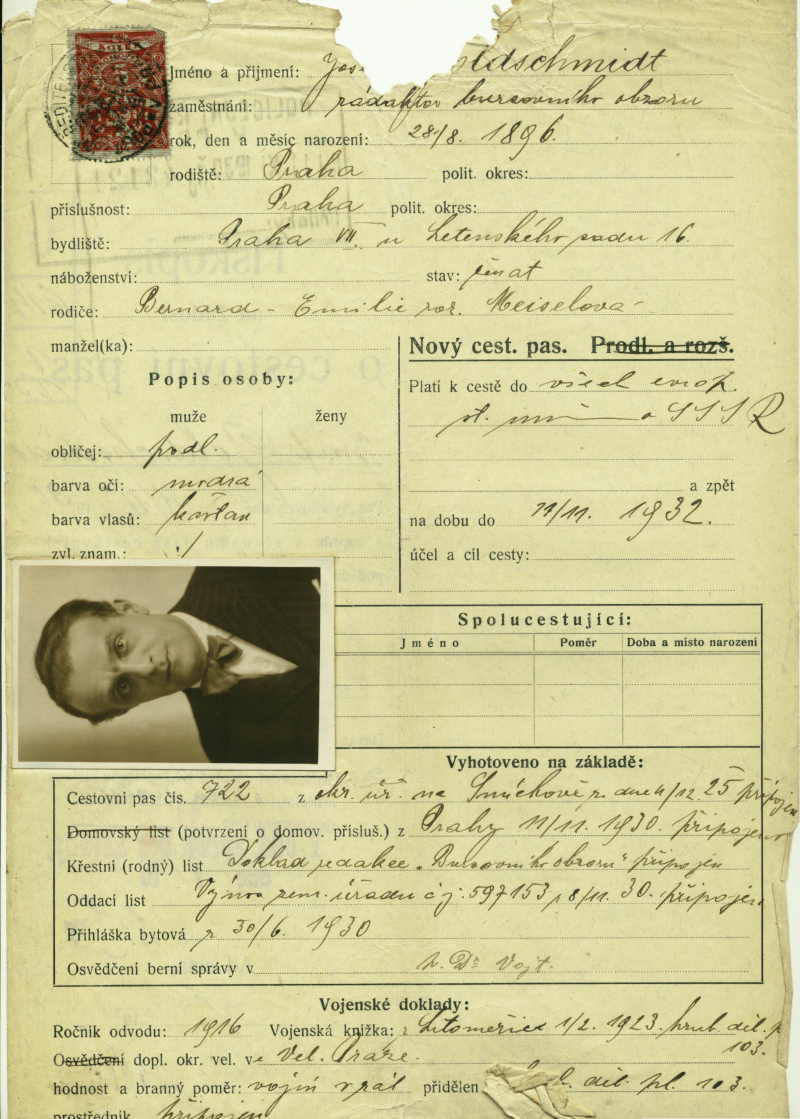 KOLEK
Jméno a příjmení: Jos ldschmidt
zaměstnání: rédaktor bursovního obzoru
rok, den a měsíc narození: 28/8. 1896.
rodiště: Praha polit. okres:
příslušnost: Praha polit. okres:
bydliště: Praha VII. u Letenského sadu 16.
náboženství: stav: ženat
rodiče: Bernard - Emilie roz. Meiselová
manžel(ka):
Popis osoby:
muže ženy
obličej: podl.
barva očí: modrá
barva vlasů: kaštan
zvl. znam.:
Nový cest. pas. Prodl. a rozš.
Platí k cestě do všech evrop.
st. mimo SSSR
a zpět
na dobu do 11/11. 1932.
účel a cíl cesty:
Spolucestující:
Jméno Poměr Doba a místo narození
Vyhotoveno na základě:
Cestovní pas čís. 722 z okr. úř. na Smíchově z dne 4/12. 25 připojen
Domovský list (potvrzení o domov. přísluš.) z Prahy 11/11. 1930. připojeno
Křestní (rodný) list Doklad redakce „Bursovního obzoru" připojen
Oddací list Výnos zem. úřadu čj. 597153 z 8/11. 30. připojen
Přihláška bytová z 30/6. 1930
Osvědčení berní správy v Dr Vojt.
Vojenské doklady:
Ročník odvodu: 1916 Vojenská knížka: Litoměřice 1/2. 1923. hrub. děl. p
103.
Osvědčení dopl. okr. vel. ve Vel. Praze.
hodnost a branný poměr: vojín v zál přidělen děl. pl. 103.
prostředník připojen